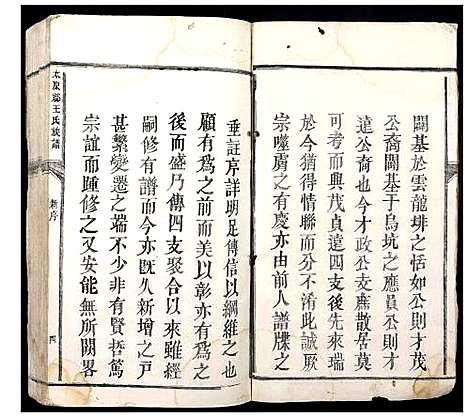 闢基於雲龍垻之恬如公則才茂
公裔闢基于烏坑之應員公則才
達公裔也今才政公支雖散居莫
考而與茂貞達四支後先來瑞
於今猶得情聯而分不淆此誠厥
宗噬膚之有慶亦由前人譜牒之
垂註序詳明足傳信以綱維之也
顧有為之前而美以彰亦有為之
後而盛乃傳四支聚合以來雖經
嗣修有譜而今亦既久新增之戶
甚繁變遷之端不少非有賢哲篤
宗誼而踵修之又安能無所闕畧
太原郡王氏族譜
新序
四